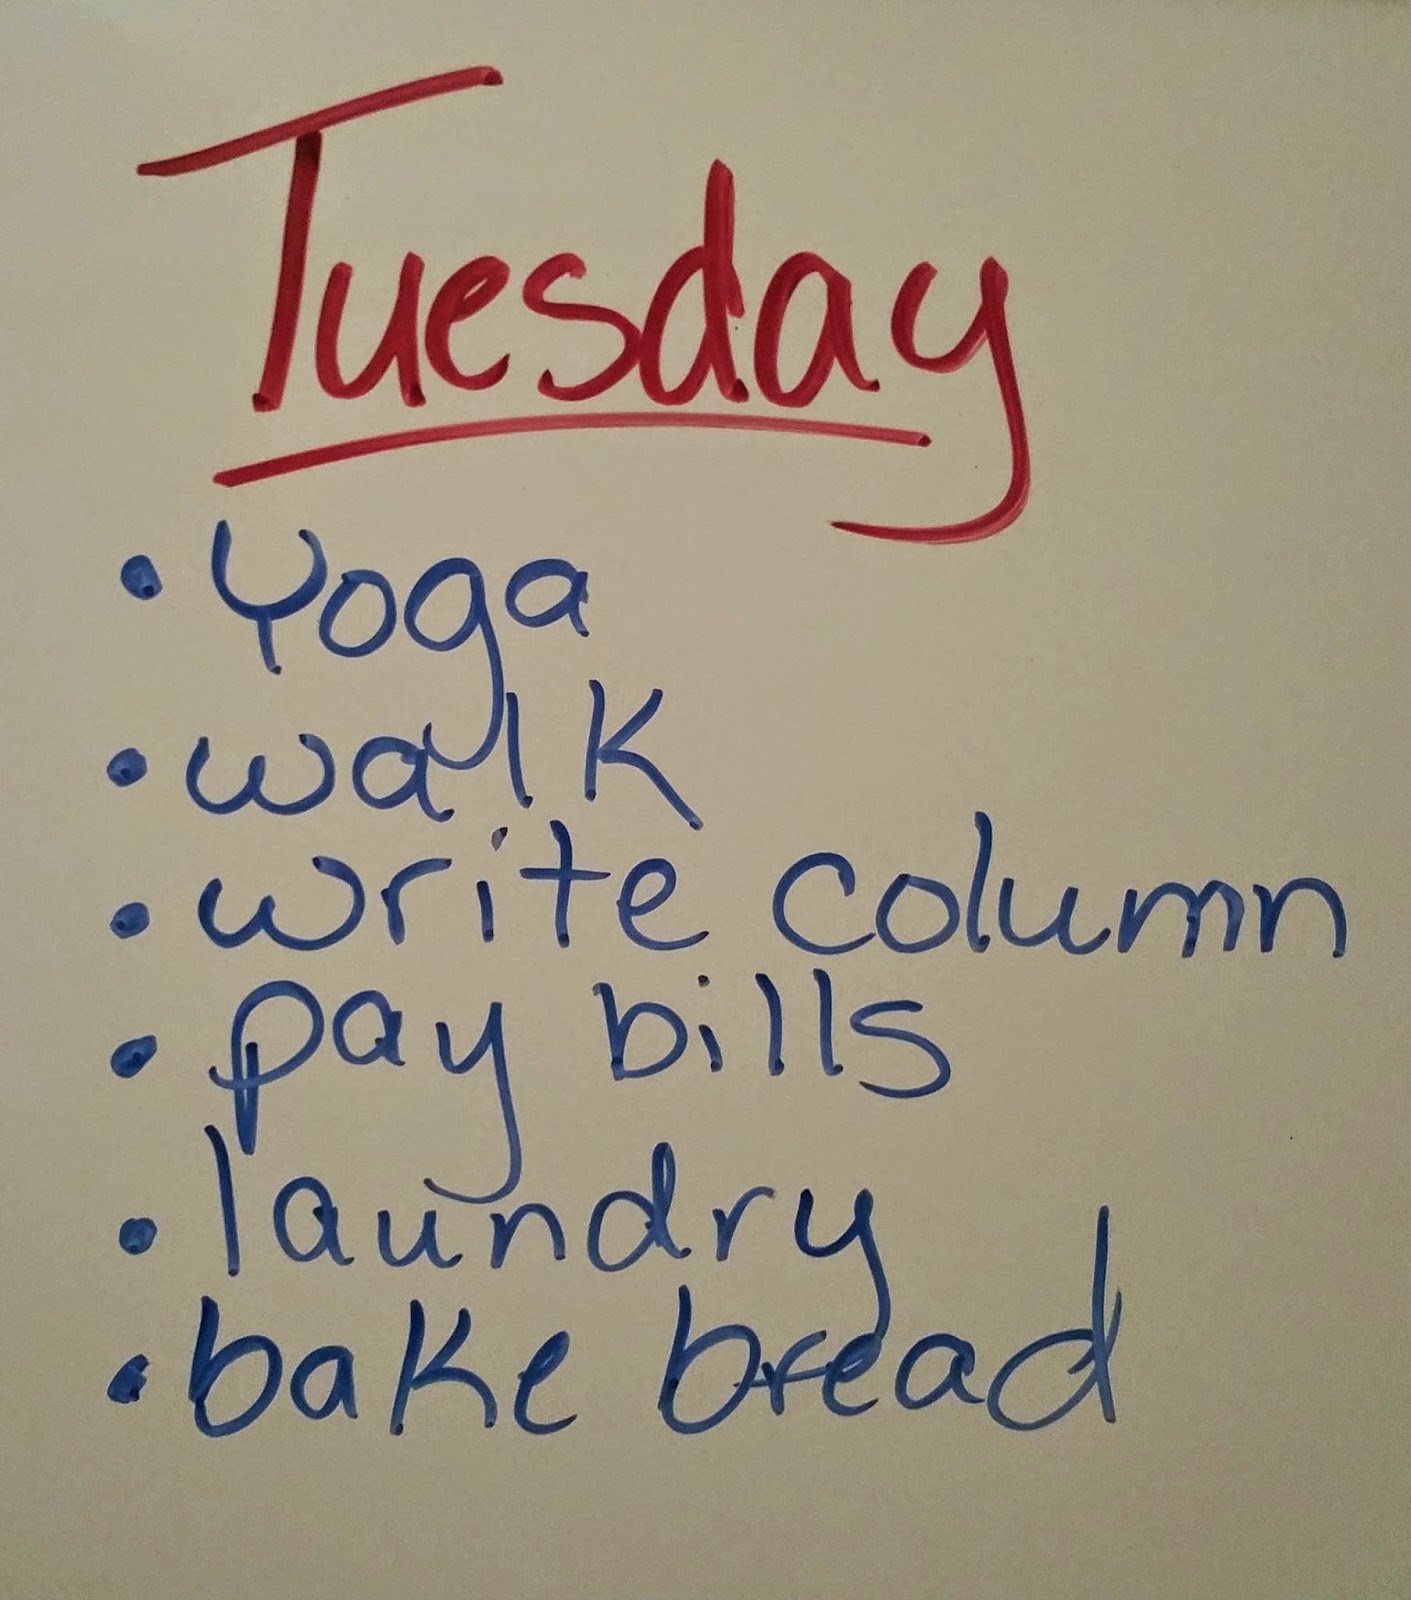 Tuesday
• Yoga
• walk
• write column
• pay bills
• laundry
• bake bread